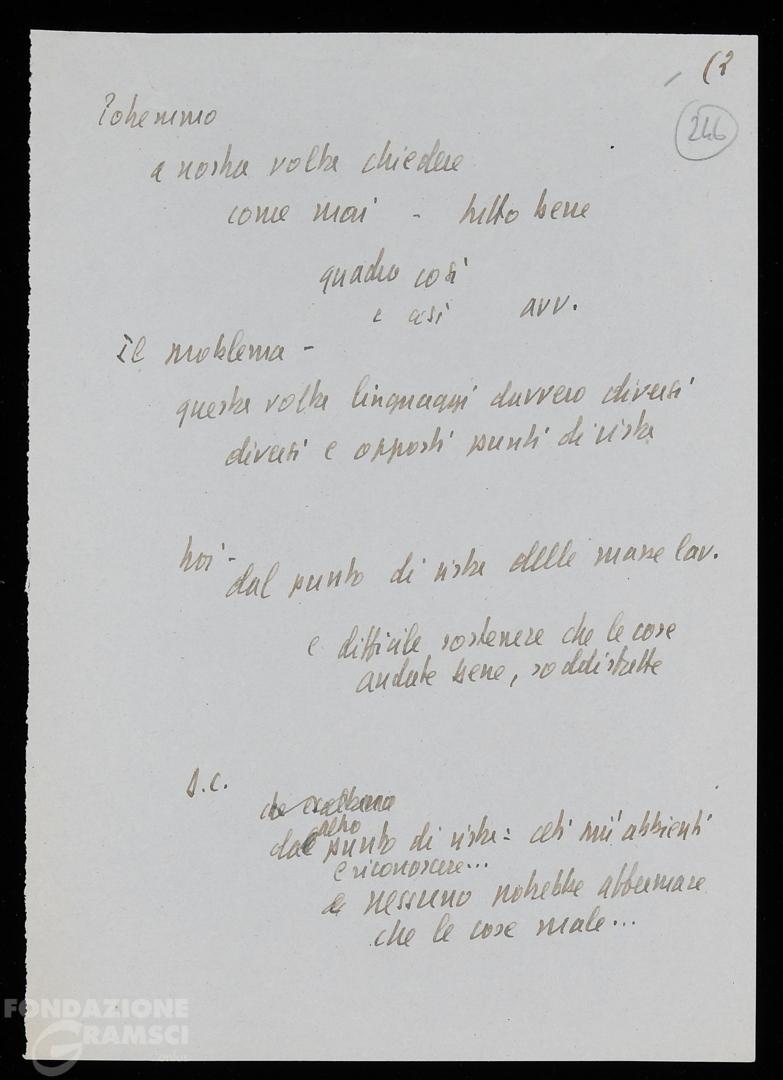 (2
246
Potremmo
a nostra volta chiedere
come mai - tutto bene
quadro così
e così avv.
Il problema -
questa volta linguaggi davvero diversi
diversi e opposti punti di vista
noi -
dal punto di vista delle masse lav.
è difficile sostenere che le cose
andate bene, soddisfatte
D.C.
altro
dal punto di vista: ceti più abbienti
e riconoscere...
nessuno potrebbe affermare
che le cose male...
FONDAZIONE
GRAMSCI
onlus